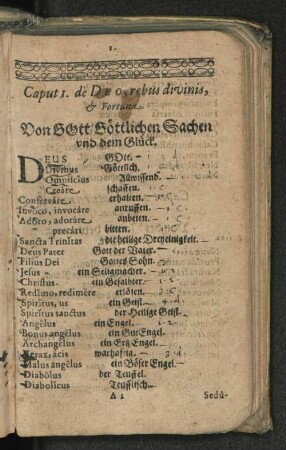 1.
Caput 1. de DEO, rebus divinis,
& Fortuna.
Von GOtt Göttlichen Sachen
vnd dem Glück.
DEUS GOtt.
Divinus Göttlich.
Omniscius Allwissend.
Creāre schaffen.
Conservāre erhalten.
Invŏco, invocāre anruffen.
Adōro, adorāre anbeten.
precāri bitten.
Sancta Trinitas die heilige Dreyeinigkeit.
Deus Pater Gott der Vater.
Filius Dei Gottes Sohn.
Jesus ein Seligmacher.
Christus. ein Gesalbter.
Redĭmo, redimĕre erlösen.
Spirĭtus, us ein Geist.
Spirĭtus sanctus der Heilige Geist.
Angĕlus ein Engel.
Bonus angĕlus ein Gut Engel.
Archangĕlus ein Ertz Engel.
Verax, ācis warhafftig.
Malus angĕlus ein Böser Engel.
Diabŏlus der Teuffel.
Diabolĭcus Teufflisch.
A 2 Sedŭ-